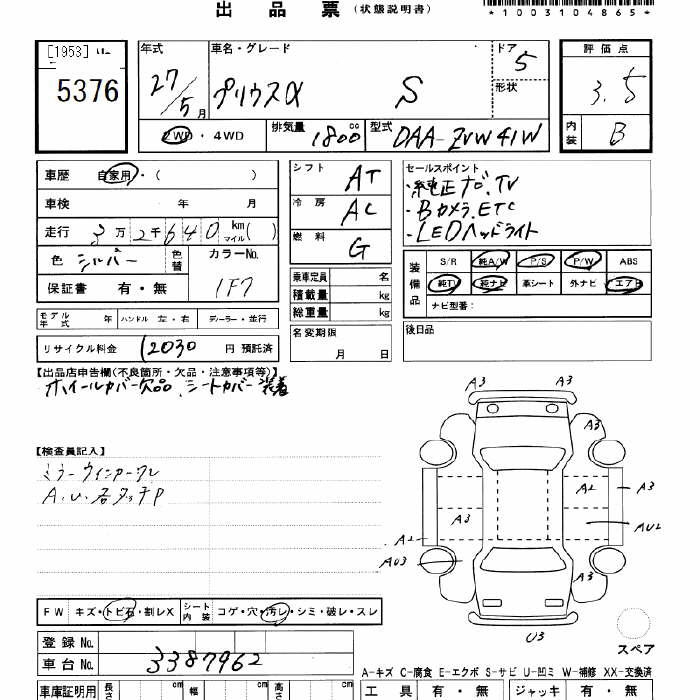 出品票(状態説明書)
*1003104865*
[1953]
5376
年式
27/5月
車名・グレード
プリウスα S
ドア
5
形状
評価点
3.5
内装
B
2WD・4WD
排気量
1800cc
型式
DAA-ZVW41W
車歴 自家用・( )
車検 年 月
走行 3万2千640 km マイル( )
色 シルバー
色替
カラーNo.
1F7
保証書 有・無
シフト
AT
冷房
AC
燃料
G
セールスポイント
・純正ナビ.TV
・Bカメラ.ETC
・LEDヘッドライト
乗車定員 名
積載量 kg
総重量 kg
装備品
S/R 純A/W P/S P/W ABS
純TV 純ナビ 革シート 外ナビ エアB
ナビ型番:
モデル年式 年
ハンドル 左・右
ディーラー・並行
名変期限
月 日
後日品
リサイクル料金 12030 円 預託済
【出品店申告欄(不良箇所・欠品・注意事項等)】
ホイールカバー欠品、シートカバー装着
【検査員記入】
ミラーウィンカーワレ
A.U.各タッチP
A3 A3
A3 A3
A2 A3
A3
AU2
A2
AU3
A3
U3
スペア
FW キズ・トビ石・割レX
シート内装
コゲ・穴・汚レ・シミ・破レ・スレ
登録No.
車台No. 3387962
A-キズ C-腐食 E-エクボ S-サビ U-凹ミ W-補修 XX-交換済
車庫証明用 長さ cm 幅 cm 高さ cm
工具 有・無 ジャッキ 有・無